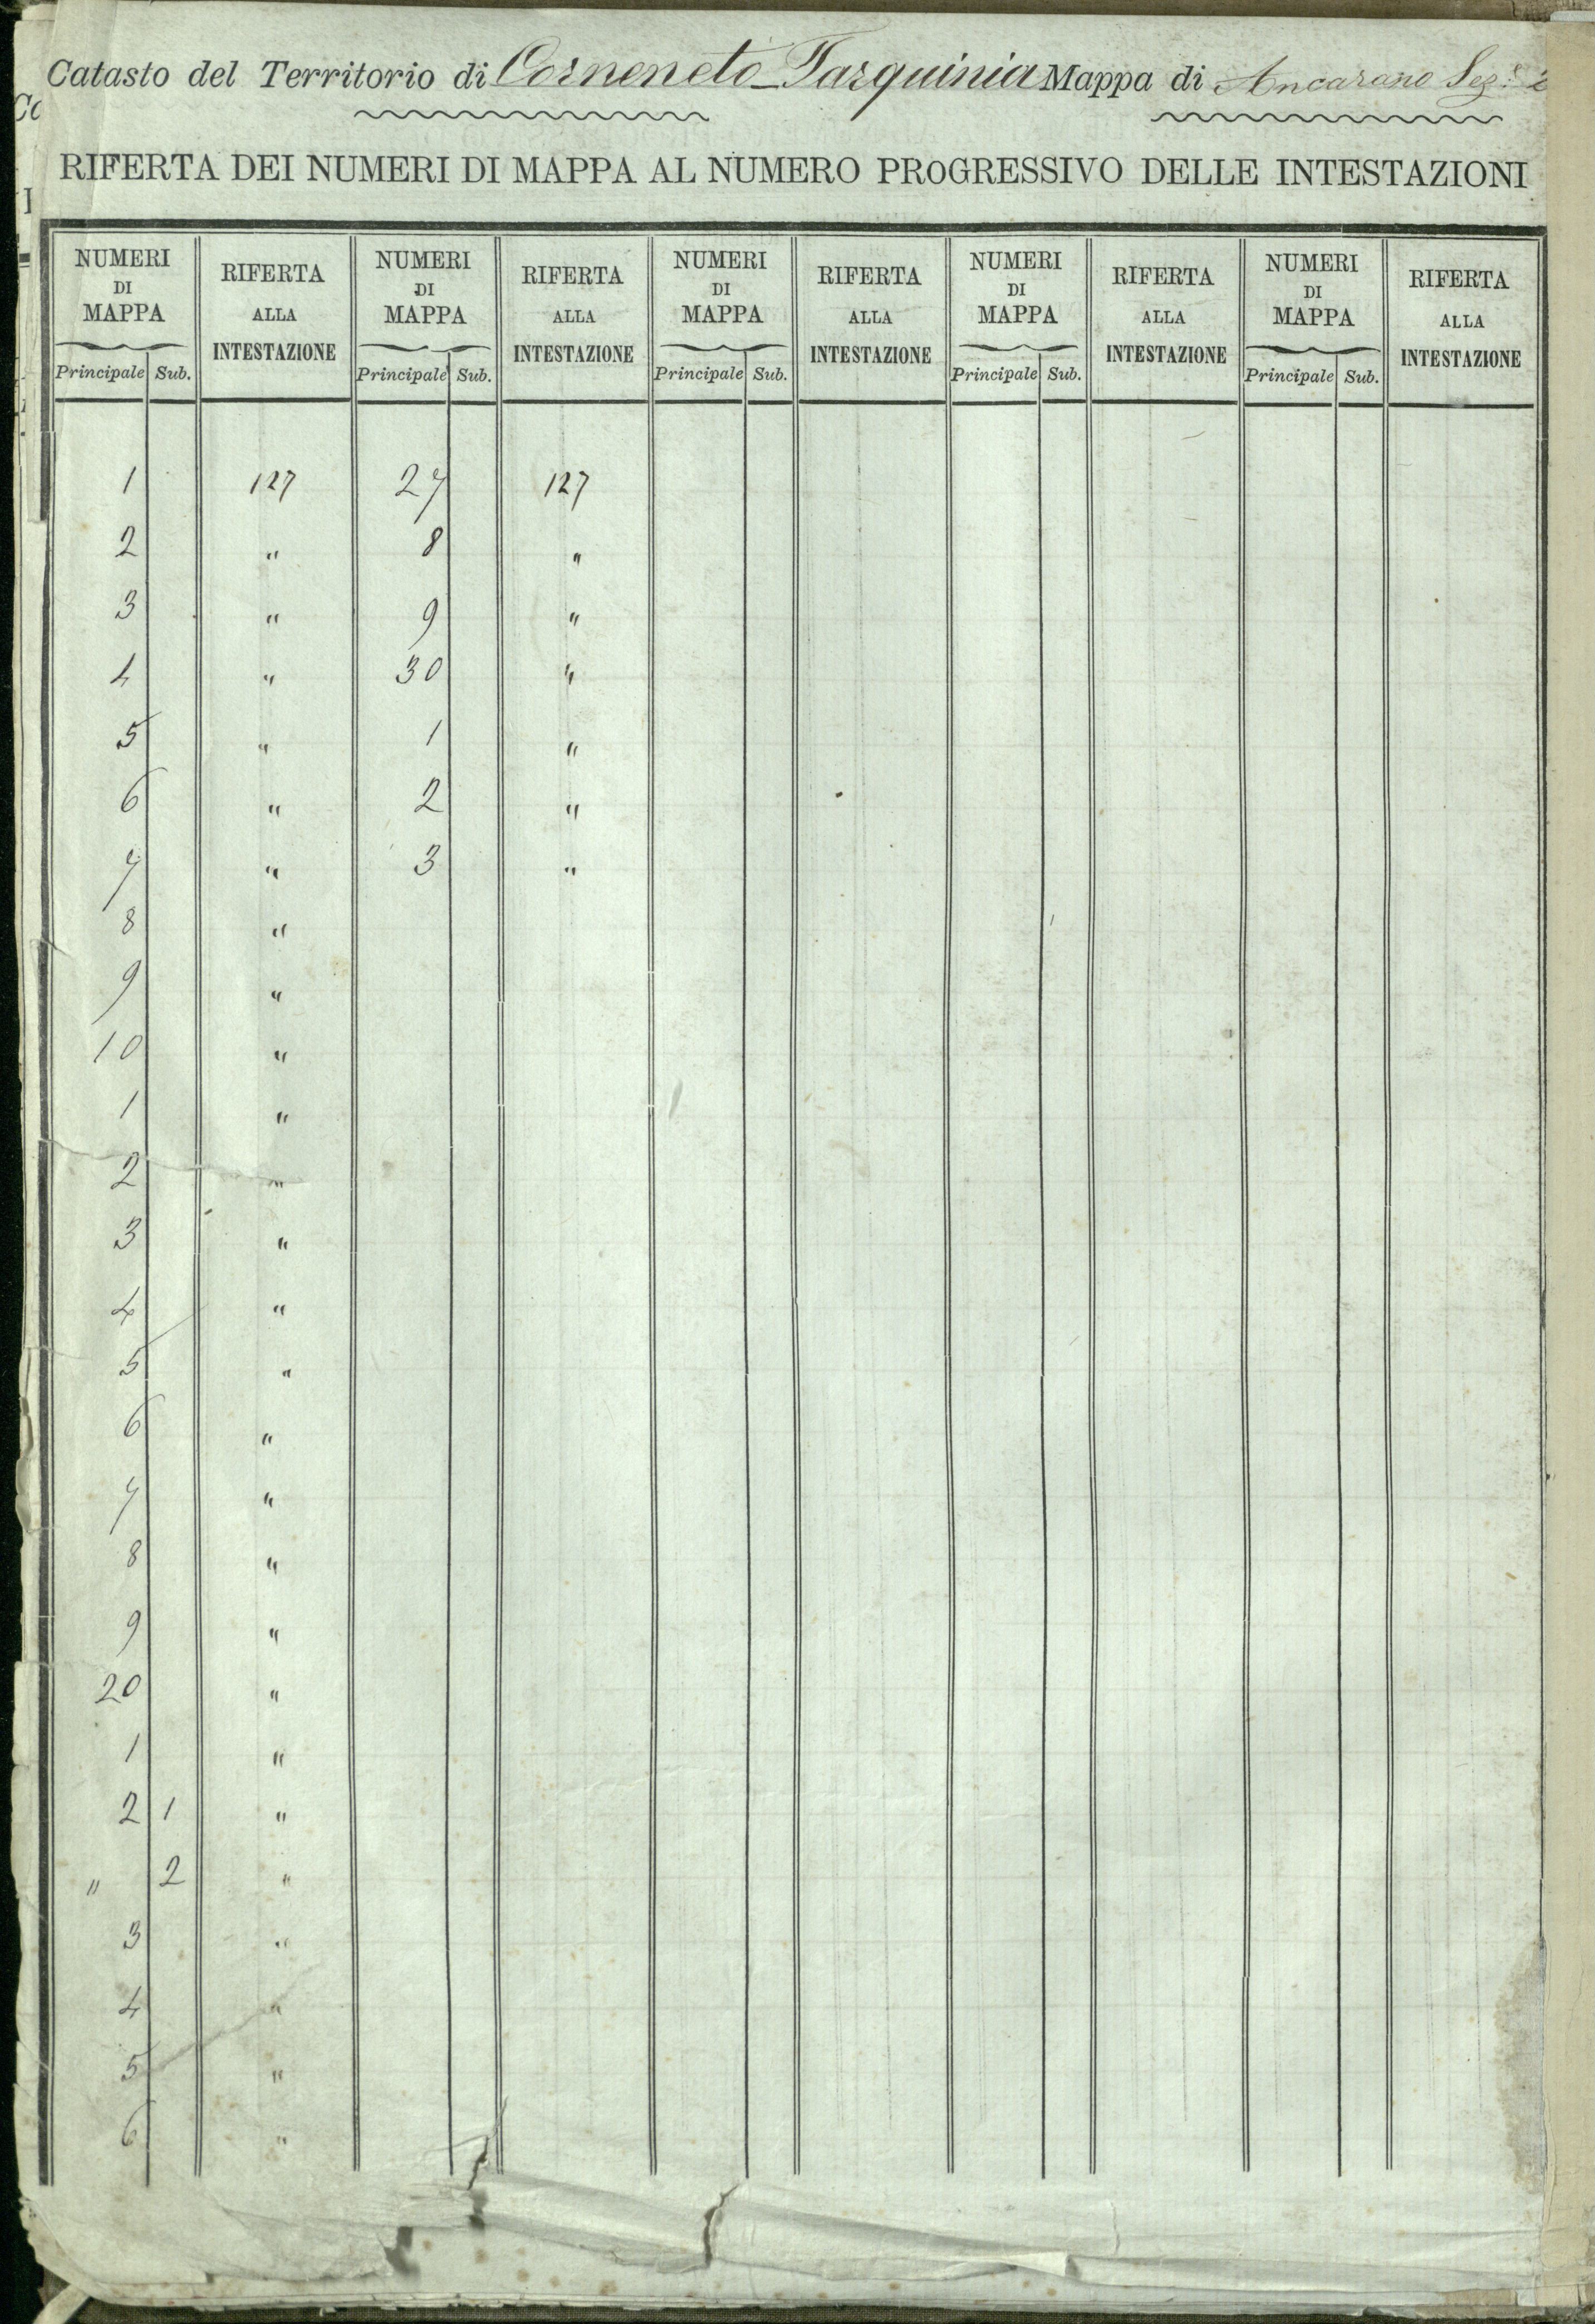 Catasto del Territorio di Corneneto_Tarquinia Mappa di Ancarano Sez.e 2
RIFERTA DEI NUMERI DI MAPPA AL NUMERO PROGRESSIVO DELLE INTESTAZIONI
NUMERI DI MAPPA RIFERTA ALLA INTESTAZIONE NUMERI DI MAPPA RIFERTA ALLA INTESTAZIONE NUMERI DI MAPPA RIFERTA ALLA INTESTAZIONE NUMERI DI MAPPA RIFERTA ALLA INTESTAZIONE NUMERI DI MAPPA RIFERTA ALLA INTESTAZIONE
Principale Sub. Principale Sub. Principale Sub. Principale Sub. Principale Sub.
1 127 27 127
2 " 8 "
3 " 9 "
4 " 30 "
5 " 1 "
6 " 2 "
7 " 3 "
8 "
9 "
10 "
1 "
2 "
3 "
4 "
5 "
6 "
7 "
8 "
9 "
20 "
1 "
2 1 "
" 2 "
3 "
4 "
5 "
6 "